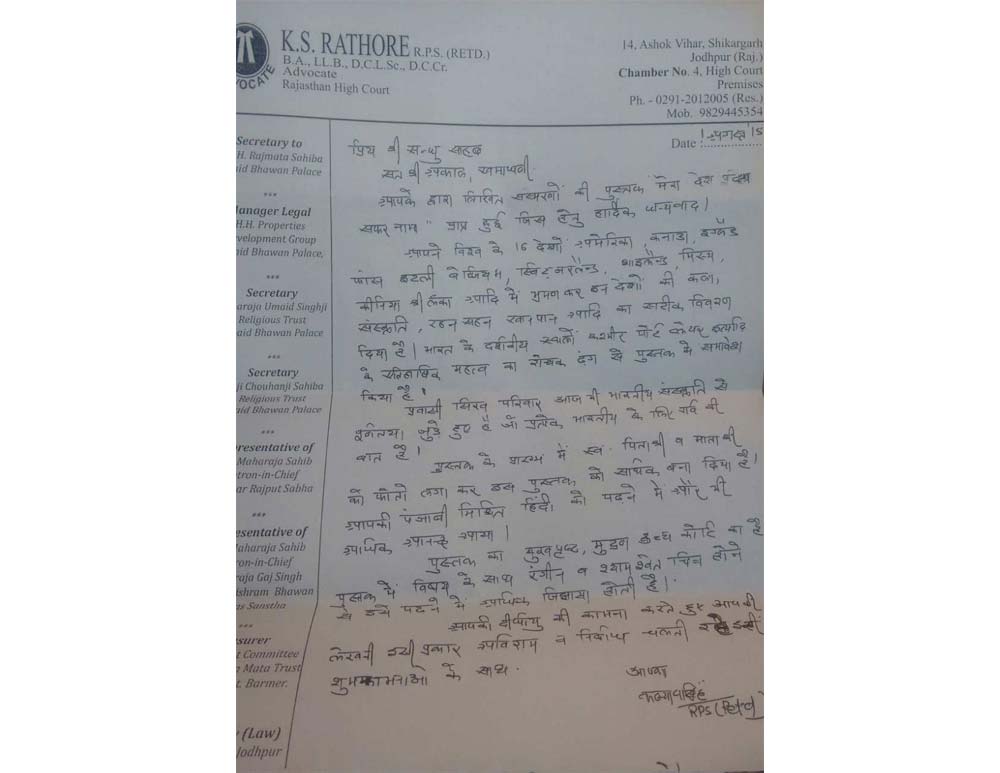 K.S. RATHORE R.P.S. (RETD.)
B.A., LL.B., D.C.L.Sc., D.C.Cr.
Advocate
Rajasthan High Court
VOCATE
14, Ashok Vihar, Shikargarh
Jodhpur (Raj.)
Chamber No. 4, High Court
Premises
Ph. - 0291-2012005 (Res.)
Mob. 9829445354
Date : 1 अगस्त 15
Secretary to
H. Rajmata Sahiba
aid Bhawan Palace
***
Manager Legal
H.H. Properties
velopment Group
aid Bhawan Palace,
***
Secretary
araja Umaid Singhji
Religious Trust
aid Bhawan Palace
***
Secretary
ji Chouhanji Sahiba
Religious Trust
aid Bhawan Palace
***
presentative of
Maharaja Sahib
tron-in-Chief
ar Rajput Sabha
***
esentative of
aharaja Sahib
ron-in-Chief
raja Gaj Singh
ishram Bhawan
as Sanstha
***
surer
t Committee
Mata Trust
t. Barmer.
(Law)
Jodhpur
प्रिय श्री सन्धु साहब
सत श्री अकाल, खमाघणी
आपके द्वारा लिखित संस्मरणों की पुस्तक मेरा देश प्रदेश
सफर नामा" प्राप्त हुई जिस हेतु हार्दिक धन्यवाद।
आपने विश्व के 16 देशों अमेरिका, कनाडा, इंग्लैंड
फ्रांस इटली बेल्जियम, स्विट्जरलैन्ड, थाईलैन्ड, मिस्र,
कीनिया श्री लंका आदि में भ्रमण कर इन देशों की कला,
संस्कृति, रहन सहन खानपान आदि का सटीक विवरण
दिया है। भारत के दर्शनीय स्थलों कश्मीर पोर्ट ब्लेयर इत्यादि
के ऐतिहासिक महत्व का रोचक ढंग से पुस्तक में समावेश
किया है।
प्रवासी सिख परिवार आज भी भारतीय संस्कृति से
पूर्णतया जुड़े हुए हैं जो प्रत्येक भारतीय के लिए गर्व की
बात है।
पुस्तक के प्रारम्भ में स्व. पिताश्री व माताश्री
की फोटो लगा कर इस पुस्तक को सार्थक बना दिया है।
आपकी पंजाबी मिश्रित हिंदी को पढ़ने में और भी
अधिक आनन्द आया।
पुस्तक का मुखपृष्ठ, मुद्रण उच्च कोटि का है
पुस्तक में विषय के साथ रंगीन व श्याम श्वेत चित्र होने
से इसे पढने में अधिक जिज्ञासा होती है।
आपकी दीर्घायु की कामना करते हुए आपकी
लेखनी इसी प्रकार अविराम व निर्बाध चलती रहे इन्हीं
शुभकामनाओं के साथ.
आपका
कल्याणसिंह
RPS (Retd)